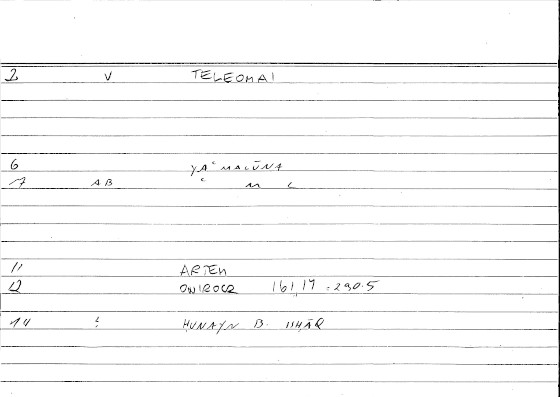 2 V TELEOMAI
6 YAʿMALŪNA
7 AB ʿ M L
11 ARTEM
12 ONIROCR 16,17 = 290.5
14 : ḤUNAYN B. ISḤĀQ